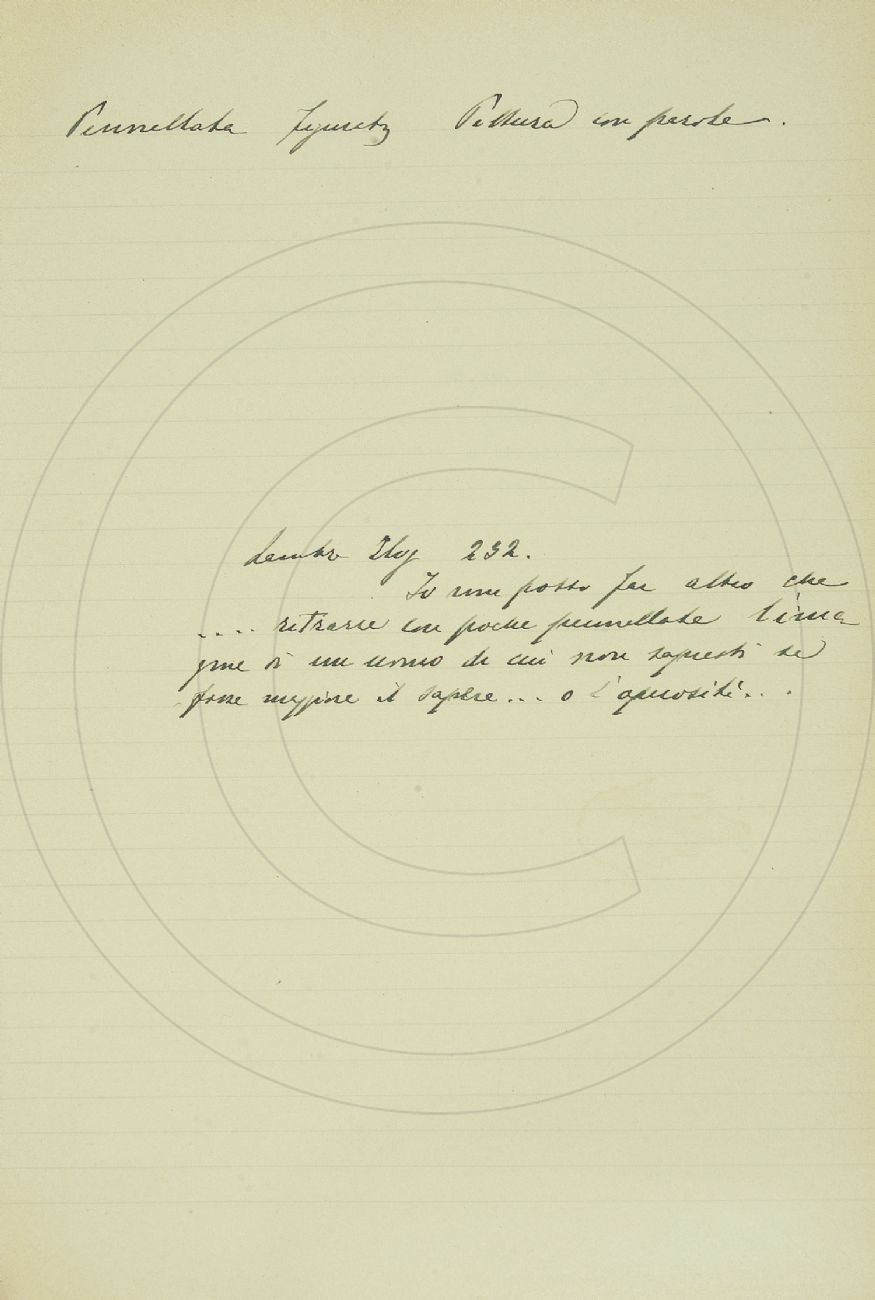 Pennellata figurata Pittura con parole.
Lambr Elog 232.
Io non posso far altro che
.... ritrarre con poche pennellate l'ima
gine di un uomo di cui non sapresti se
fosse maggiore il sapere... o l'operosità...